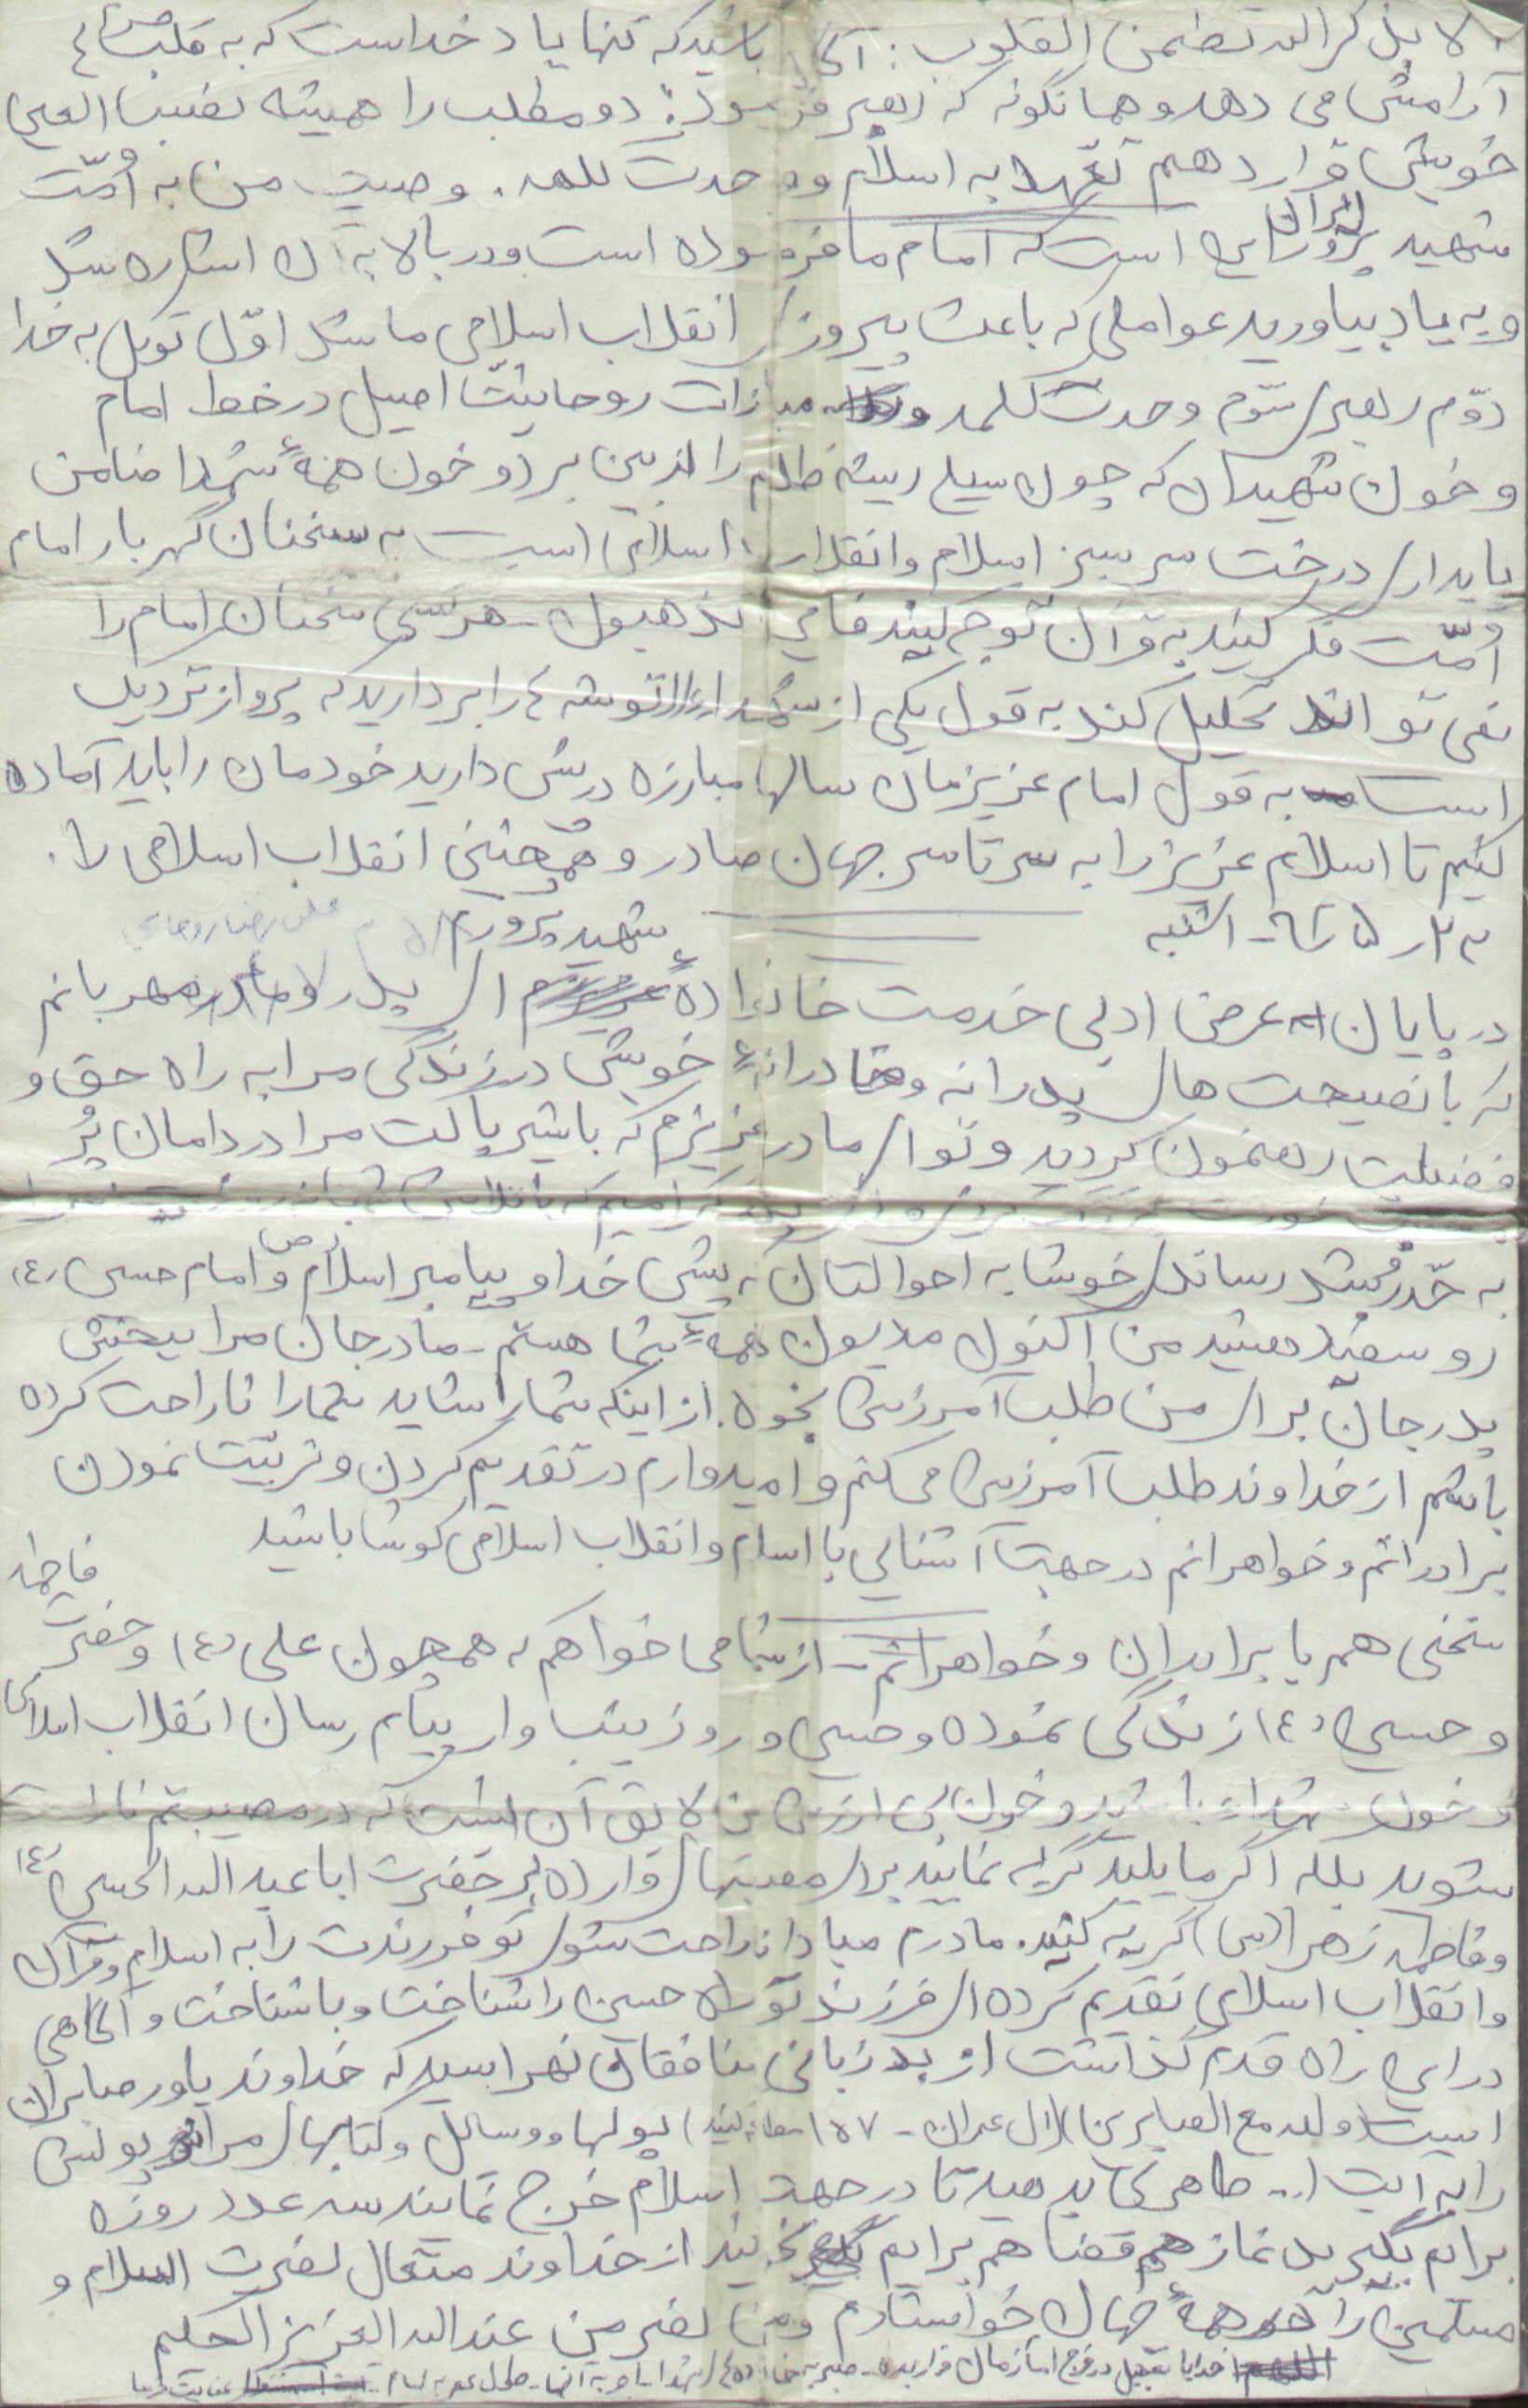 الا بذکر الله تطمئن القلوب: آگاه باشید که تنها یاد خداست که به قلب
آرامش می دهد و همانگونه که رهبر فرمود: دو مطلب را همیشه نصب العین
خویش قرار دهم تعهد به اسلام و وحدت کلمه. وصیت من به اُمّت
شهید پرور ایران این است که امام ما فرموده است و در بالا به آن اشاره شد
و به یاد بیاورید عواملی که باعث پیروزی انقلاب اسلامی ما شد اوّل توکل به خدا
دوّم رهبری سّوم وحدت کلمه و مبارزات روحانیّت اصیل در خط امام
و خون شهیدان که چون سیلی ریشه ظلم را از بین برد و خون همهٔ شهدا ضامن
پایداری درخت سرسبز اسلام و انقلاب اسلامی است به سخنان گهربار امام
اُمّت فکر کنید به قرآن توجه کنید فاین تذهبون - هر کسی سخنان امام را
نمی تواند تحلیل کند به قول یکی از شهدا توشه را بردارید که پرواز نزدیک
است به قول امام عزیزمان سالها مبارزه در پیش دارید خودمان را باید آماده
کنیم تا اسلام عزیز را به سرتاسر جهان صادر و همچنین انقلاب اسلامی را.
شهید پرورم
در پایان عرض ادبی خدمت خانوادهٔ ای پدر و مادر مهربانم
که با نصیحت های پدرانه و مادرانهٔ خویش در زندگی مرا به راه حق و
فضیلت رهنمون کردید و تو ای مادر عزیزم که با شیر پاکت مرا در دامان پُر
به حّد رُشد رساندی خوشا به احوالتان که پیش خدا و پیامبر اسلام (ص) و امام حسین (ع)
رو سفید هستید من اکنون مدیون همهٔ شما هستم - مادر جان مرا ببخش
پدر جان برای من طلب آمرزش بخواه. از اینکه شما را شاید شما را ناراحت کرده
باشم از خداوند طلب آمرزش می کنم و امیدوارم در تقدیم کردن و تربیّت نمودن
برادرانم و خواهرانم در جهت آشنایی با اسلام و انقلاب اسلامی کوشا باشید
سخنی هم با برادران و خواهرانم - از شما می خواهم که همچون علی (ع) و حضرت فاطمه
و حسین (ع) زندگی نموده و حسین وار و زینب وار پیام رسان انقلاب اسلامی
و خون شهدا باشید و خون بی ارزش من لایق آن نیست که در مصیبتم ناراحت
شوید بلکه اگر مایلید گریه نمایید برای مصیبتهای وارده بر حضرت اباعبدالله الحسین (ع)
و فاطمه زهرا (س) گریه کنید. مادرم مبادا ناراحت شوی تو فرزندت را به اسلام و قرآن
و انقلاب اسلامی تقدیم کرده ای فرزند تو راه حسین را شناخت و با شناخت و آگاهی
در این راه قدم گذاشت از بد زبانی منافقان نهراسید که خداوند یاور صابران
است (والله مع الصابرین) (آل عمران - ۱۵۷ مطالعه کنید) پولها و وسائل و کتابهای مرا
را به آیت ا... طاهری بدهید تا در جهت اسلام خرج نمایند سه عدد روزه
برایم بگیرید نماز قضا هم برایم بخوانید از خداوند متعال نصرت اسلام و
مسلمین را در همهٔ جهان خواستارم و من النصر من عندالله العزیز الحکیم
خدایا تعجیل در فرج امام زمان قرار بده - صبر به خانواده های شهدا